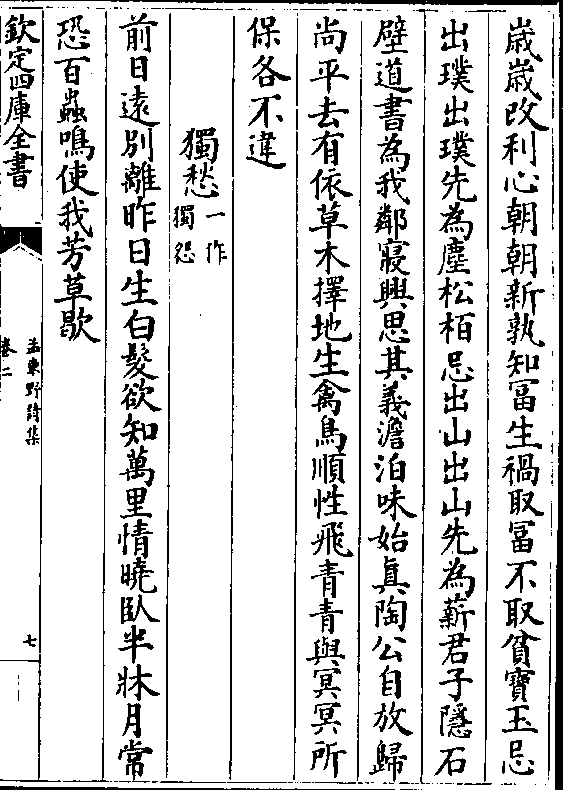 歳歳改利心朝朝新孰知冨生禍取冨不取貧寳玉忌
出璞出璞先為塵松栢忌出山出山先為薪君子隱石
壁道書為我鄰寢興思其義澹泊味始真陶公自放歸
尚平去有依草木擇地生禽鳥順性飛青青與冥冥所
保各不違
獨愁一作獨怨
前日遠別離昨日生白髮欲知萬里情曉臥半牀月常
恐百蟲鳴使我芳草歇
欽定四庫全書
孟東野詩集
卷二
七